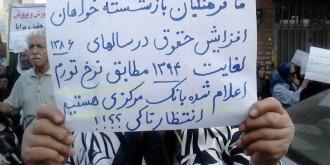 ما فرهنگیان بازنشسته خواهان
افزایش حقوق در سالهای ۱۳۸۶
لغایت ۱۳۹۴ مطابق نرخ تورم
اعلام شده بانک مرکزی هستیم
انتظار تا کی ؟؟؟!!!